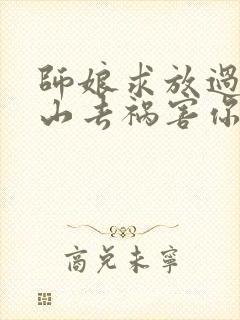 師娘求放過
山去禍害你
商兌未寧